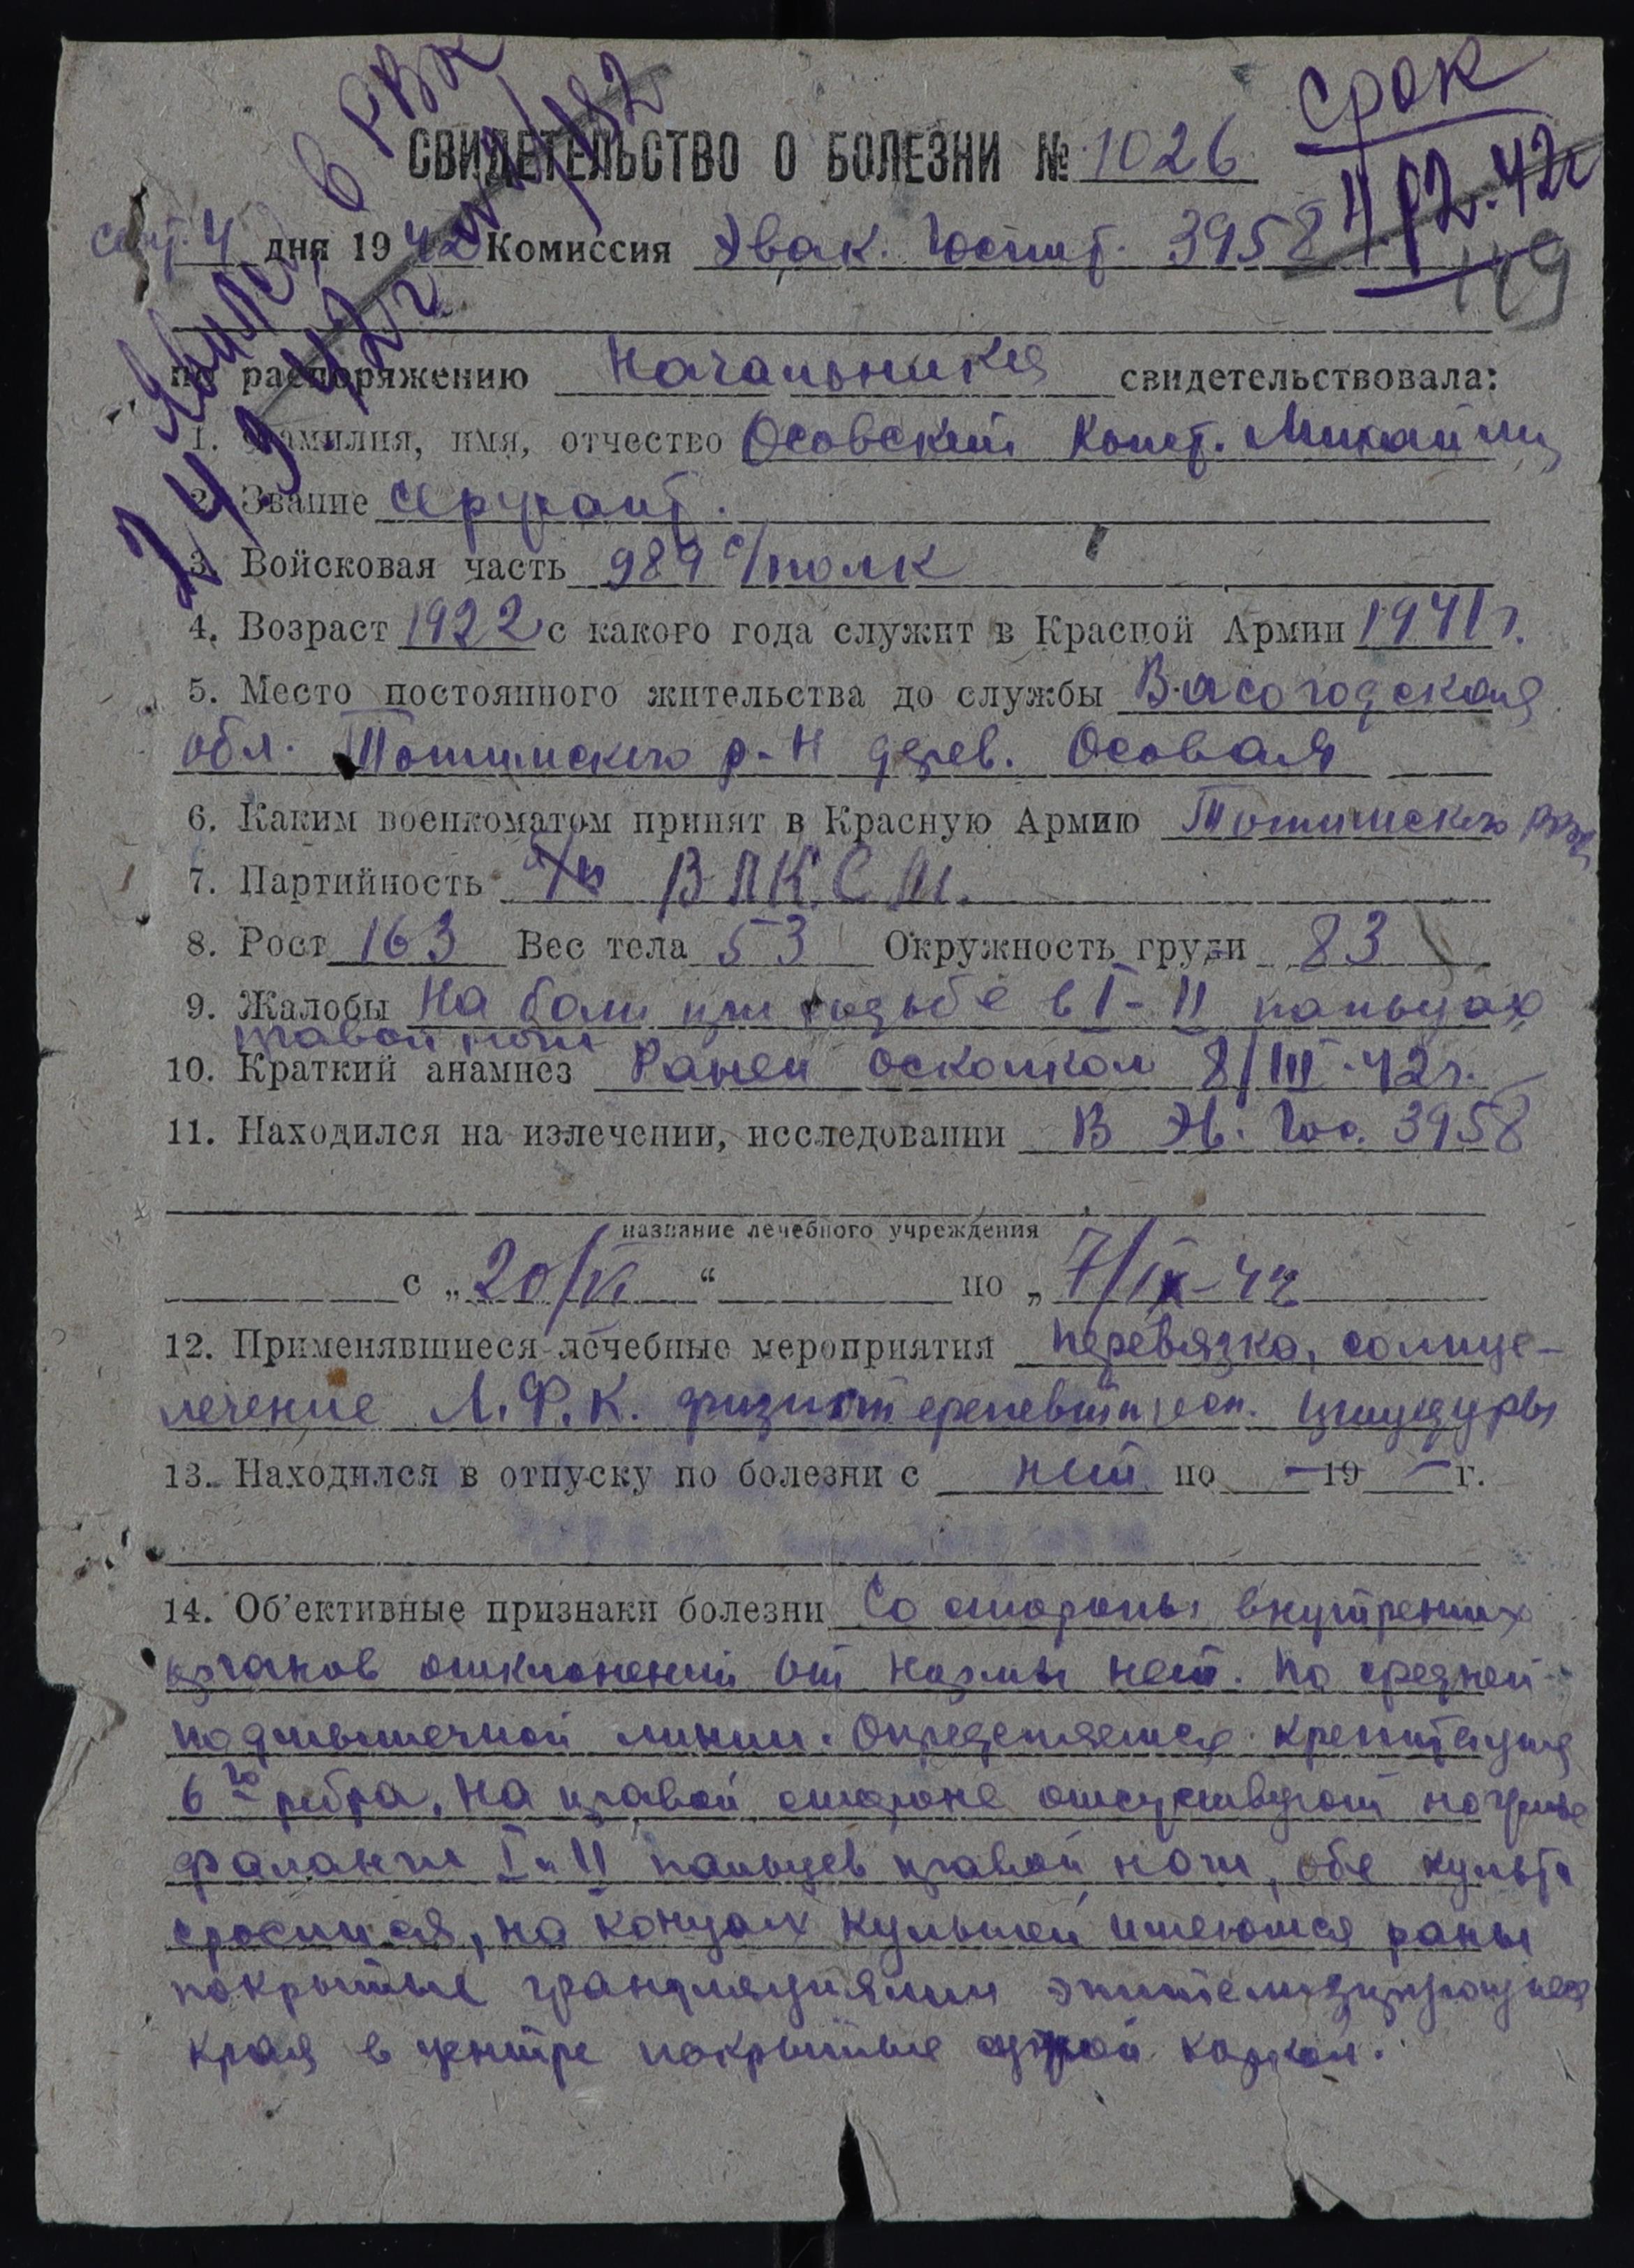 Явись в РВК
24 9 42 г
срок
4/12-42г
119
СВИДЕТЕЛЬСТВО О БОЛЕЗНИ № 1026
Сент. 4 дня 1942 Комиссия Эвак. Госпит. 3958
по распоряжению Начальника свидетельствовала:
1. Фамилия, имя, отчество Осовский Конст. Михайлиц
2. Звание сержант.
3. Войсковая часть 989 с/полк
4. Возраст 1922 с какого года служит в Красной Армии 1941 г.
5. Место постоянного жительства до службы Вологодская
обл. Тотимского р-н дерев. Осовая
6. Каким военкоматом принят в Красную Армию Тотимского РВК
7. Партийность ч/л ВЛКСМ.
8. Рост 163 Вес тела 53 Окружность груди 83
9. Жалобы На боли при ходьбе в I-II пальцах
правой ноги
10. Краткий анамнез Ранен осколком 8/III-42г.
11. Находился на излечении, исследовании В Эв. Гос. 3958
название лечебного учреждения
с „20/VI “ по „7/IX-42
12. Применявшиеся лечебные мероприятия перевязка, солнце-
лечение Л.Ф.К. физиотерапевтическ. процедуры
13. Находился в отпуску по болезни с нет по – 19 – г.
14. Об'ективные признаки болезни Со стороны внутренних
органов отклонений от нормы нет. По средней
подмышечной линии. Определяется крепитация
6го ребра, на правой стороне отсутствуют ногтевые
фаланги I и II пальцев правой ноги, обе культи
срослися, на концах культей имеются раны
покрытые грануляциями эпителизирующиеся
края в центре покрытые коркой.